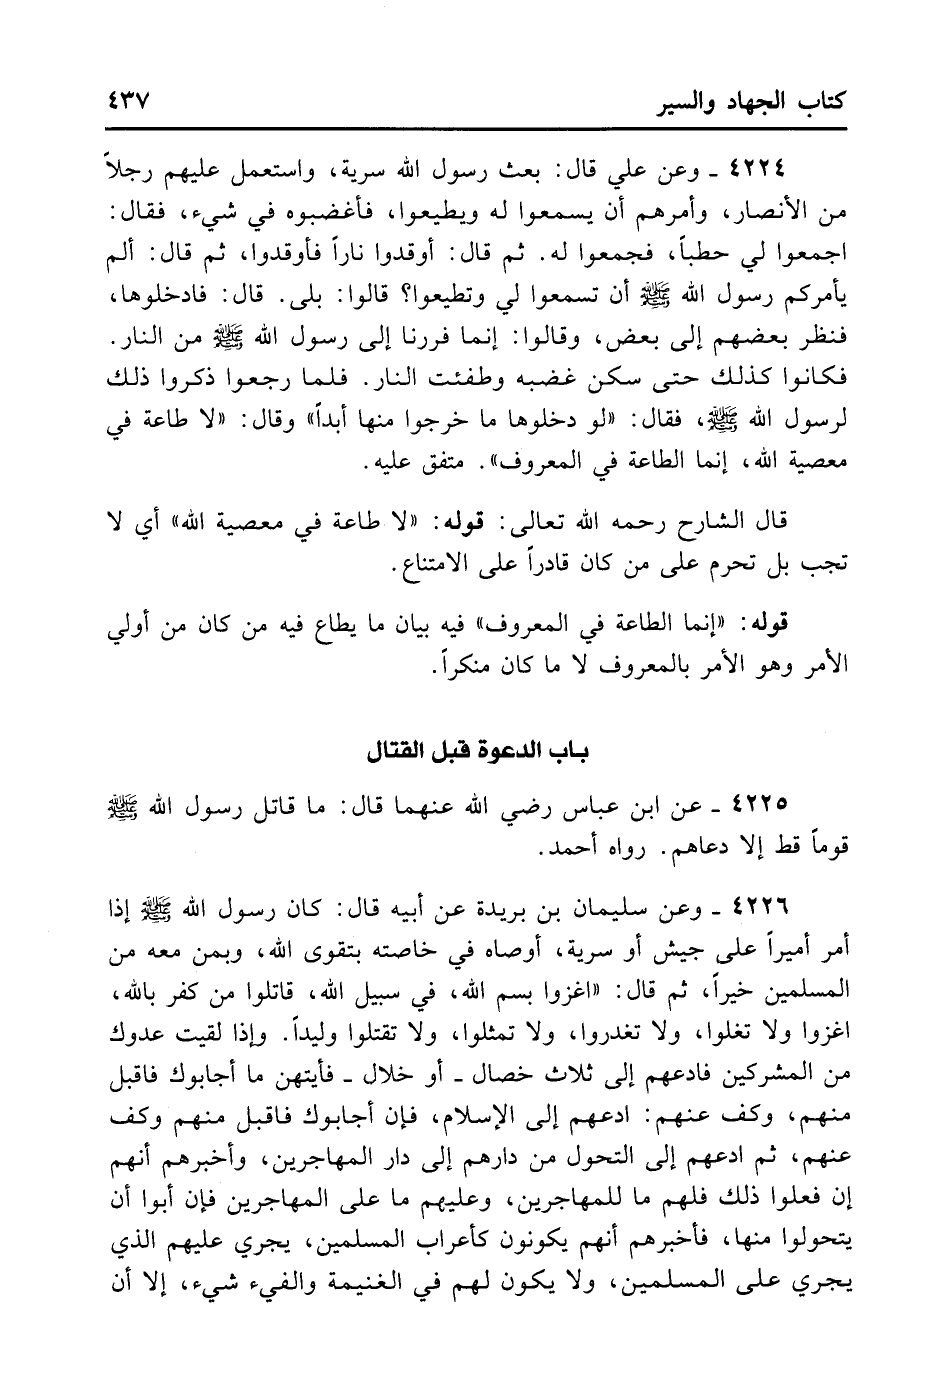 كتاب الجهاد والسير ٤٣٧
٤٢٢٤ ـ وعن علي قال: بعث رسول الله سرية، واستعمل عليهم رجلاً
من الأنصار، وأمرهم أن يسمعوا له ويطيعوا، فأغضبوه في شيء، فقال:
اجمعوا لي حطباً، فجمعوا له. ثم قال: أوقدوا ناراً فأوقدوا، ثم قال: ألم
يأمركم رسول الله ﷺ أن تسمعوا لي وتطيعوا؟ قالوا: بلى. قال: فادخلوها،
فنظر بعضهم إلى بعض، وقالوا: إنما فررنا إلى رسول الله ﷺ من النار.
فكانوا كذلك حتى سكن غضبه وطفئت النار. فلما رجعوا ذكروا ذلك
لرسول الله ﷺ، فقال: «لو دخلوها ما خرجوا منها أبداً» وقال: «لا طاعة في
معصية الله، إنما الطاعة في المعروف». متفق عليه.
قال الشارح رحمه الله تعالى: قوله: «لا طاعة في معصية الله» أي لا
تجب بل تحرم على من كان قادراً على الامتناع.
قوله: «إنما الطاعة في المعروف» فيه بيان ما يطاع فيه من كان من أولي
الأمر وهو الأمر بالمعروف لا ما كان منكراً.
باب الدعوة قبل القتال
٤٢٢٥ ـ عن ابن عباس رضي الله عنهما قال: ما قاتل رسول الله ﷺ
قوماً قط إلا دعاهم. رواه أحمد.
٤٢٢٦ ـ وعن سليمان بن بريدة عن أبيه قال: كان رسول الله ﷺ إذا
أمر أميراً على جيش أو سرية، أوصاه في خاصته بتقوى الله، وبمن معه من
المسلمين خيراً، ثم قال: «اغزوا بسم الله، في سبيل الله، قاتلوا من كفر بالله،
اغزوا ولا تغلوا، ولا تغدروا، ولا تمثلوا، ولا تقتلوا وليداً. وإذا لقيت عدوك
من المشركين فادعهم إلى ثلاث خصال ـ أو خلال ـ فأيتهن ما أجابوك فاقبل
منهم، وكف عنهم: ادعهم إلى الإسلام، فإن أجابوك فاقبل منهم وكف
عنهم، ثم ادعهم إلى التحول من دارهم إلى دار المهاجرين، وأخبرهم أنهم
إن فعلوا ذلك فلهم ما للمهاجرين، وعليهم ما على المهاجرين فإن أبوا أن
يتحولوا منها، فأخبرهم أنهم يكونون كأعراب المسلمين، يجري عليهم الذي
يجري على المسلمين، ولا يكون لهم في الغنيمة والفيء شيء، إلا أن